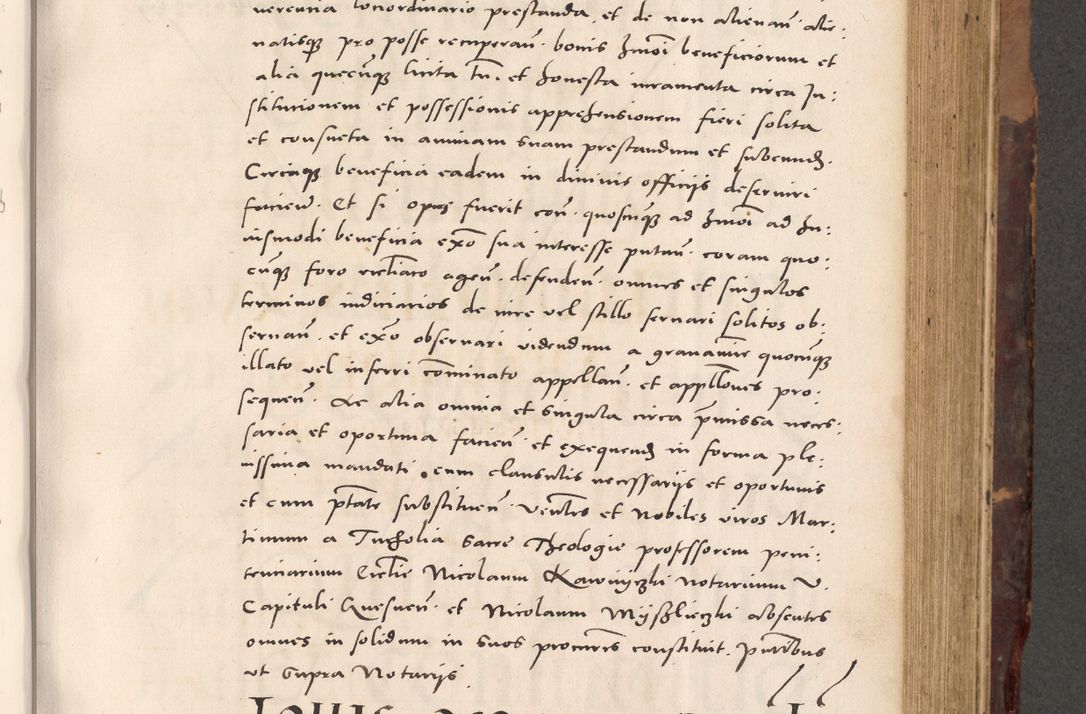 verentia loci ordinario prestanda, et de non alienan̄ alie:
natisq̃ pro posse recuperan̄ · bonis hm̄oi beneficiorum et
alia quecūq̃ licita tn̄ · et honesta iuramenta circa In:
stitutionem et possessionis apprehensionem fieri solita
et consueta in animam suam prestandum et subeund̃ ·
Circaq̃ beneficia eadem in divinis officijs deserviri
facien̄ · Et si opus fuerit con̄ · quoscūq̃ ad hm̄oi ad hu:
iusmodi beneficia ex̄o sua interesse putan̄ · coram quo:
cūq̃ foro eccl̄iastico agen̄ · defenden̄ · omnes et singulos
terminos iudiciarios de iure vel stillo servari solitos ob:
servan̄ · et ex̄o observari videndum a gravamīe quocūq̃
illato vel inferri cōminato appellan̄ · et appll̄ones pro:
sequen̄ · Ac alia omnia et singula circa p̄missa neces:
saria et oportuna facien̄ · et exequend̃ in forma ple:
nissima mandati · cum clausulis necessarijs et oportunis
et cum p̄tate substituen̄ · Ven̄les et Nobiles viros Mar:
tinum a Tucholia Sacre Theologie professorem peni:
tenciarium Eccl̄ie Nicolaum Kawinyczki Notarium V.
Capituli Gnesnen̄ · et Nicolaum Myszlieczki absentes
omnes in solidum in suos procur̄es constituit · pn̄tibus
ut supra Notarijs